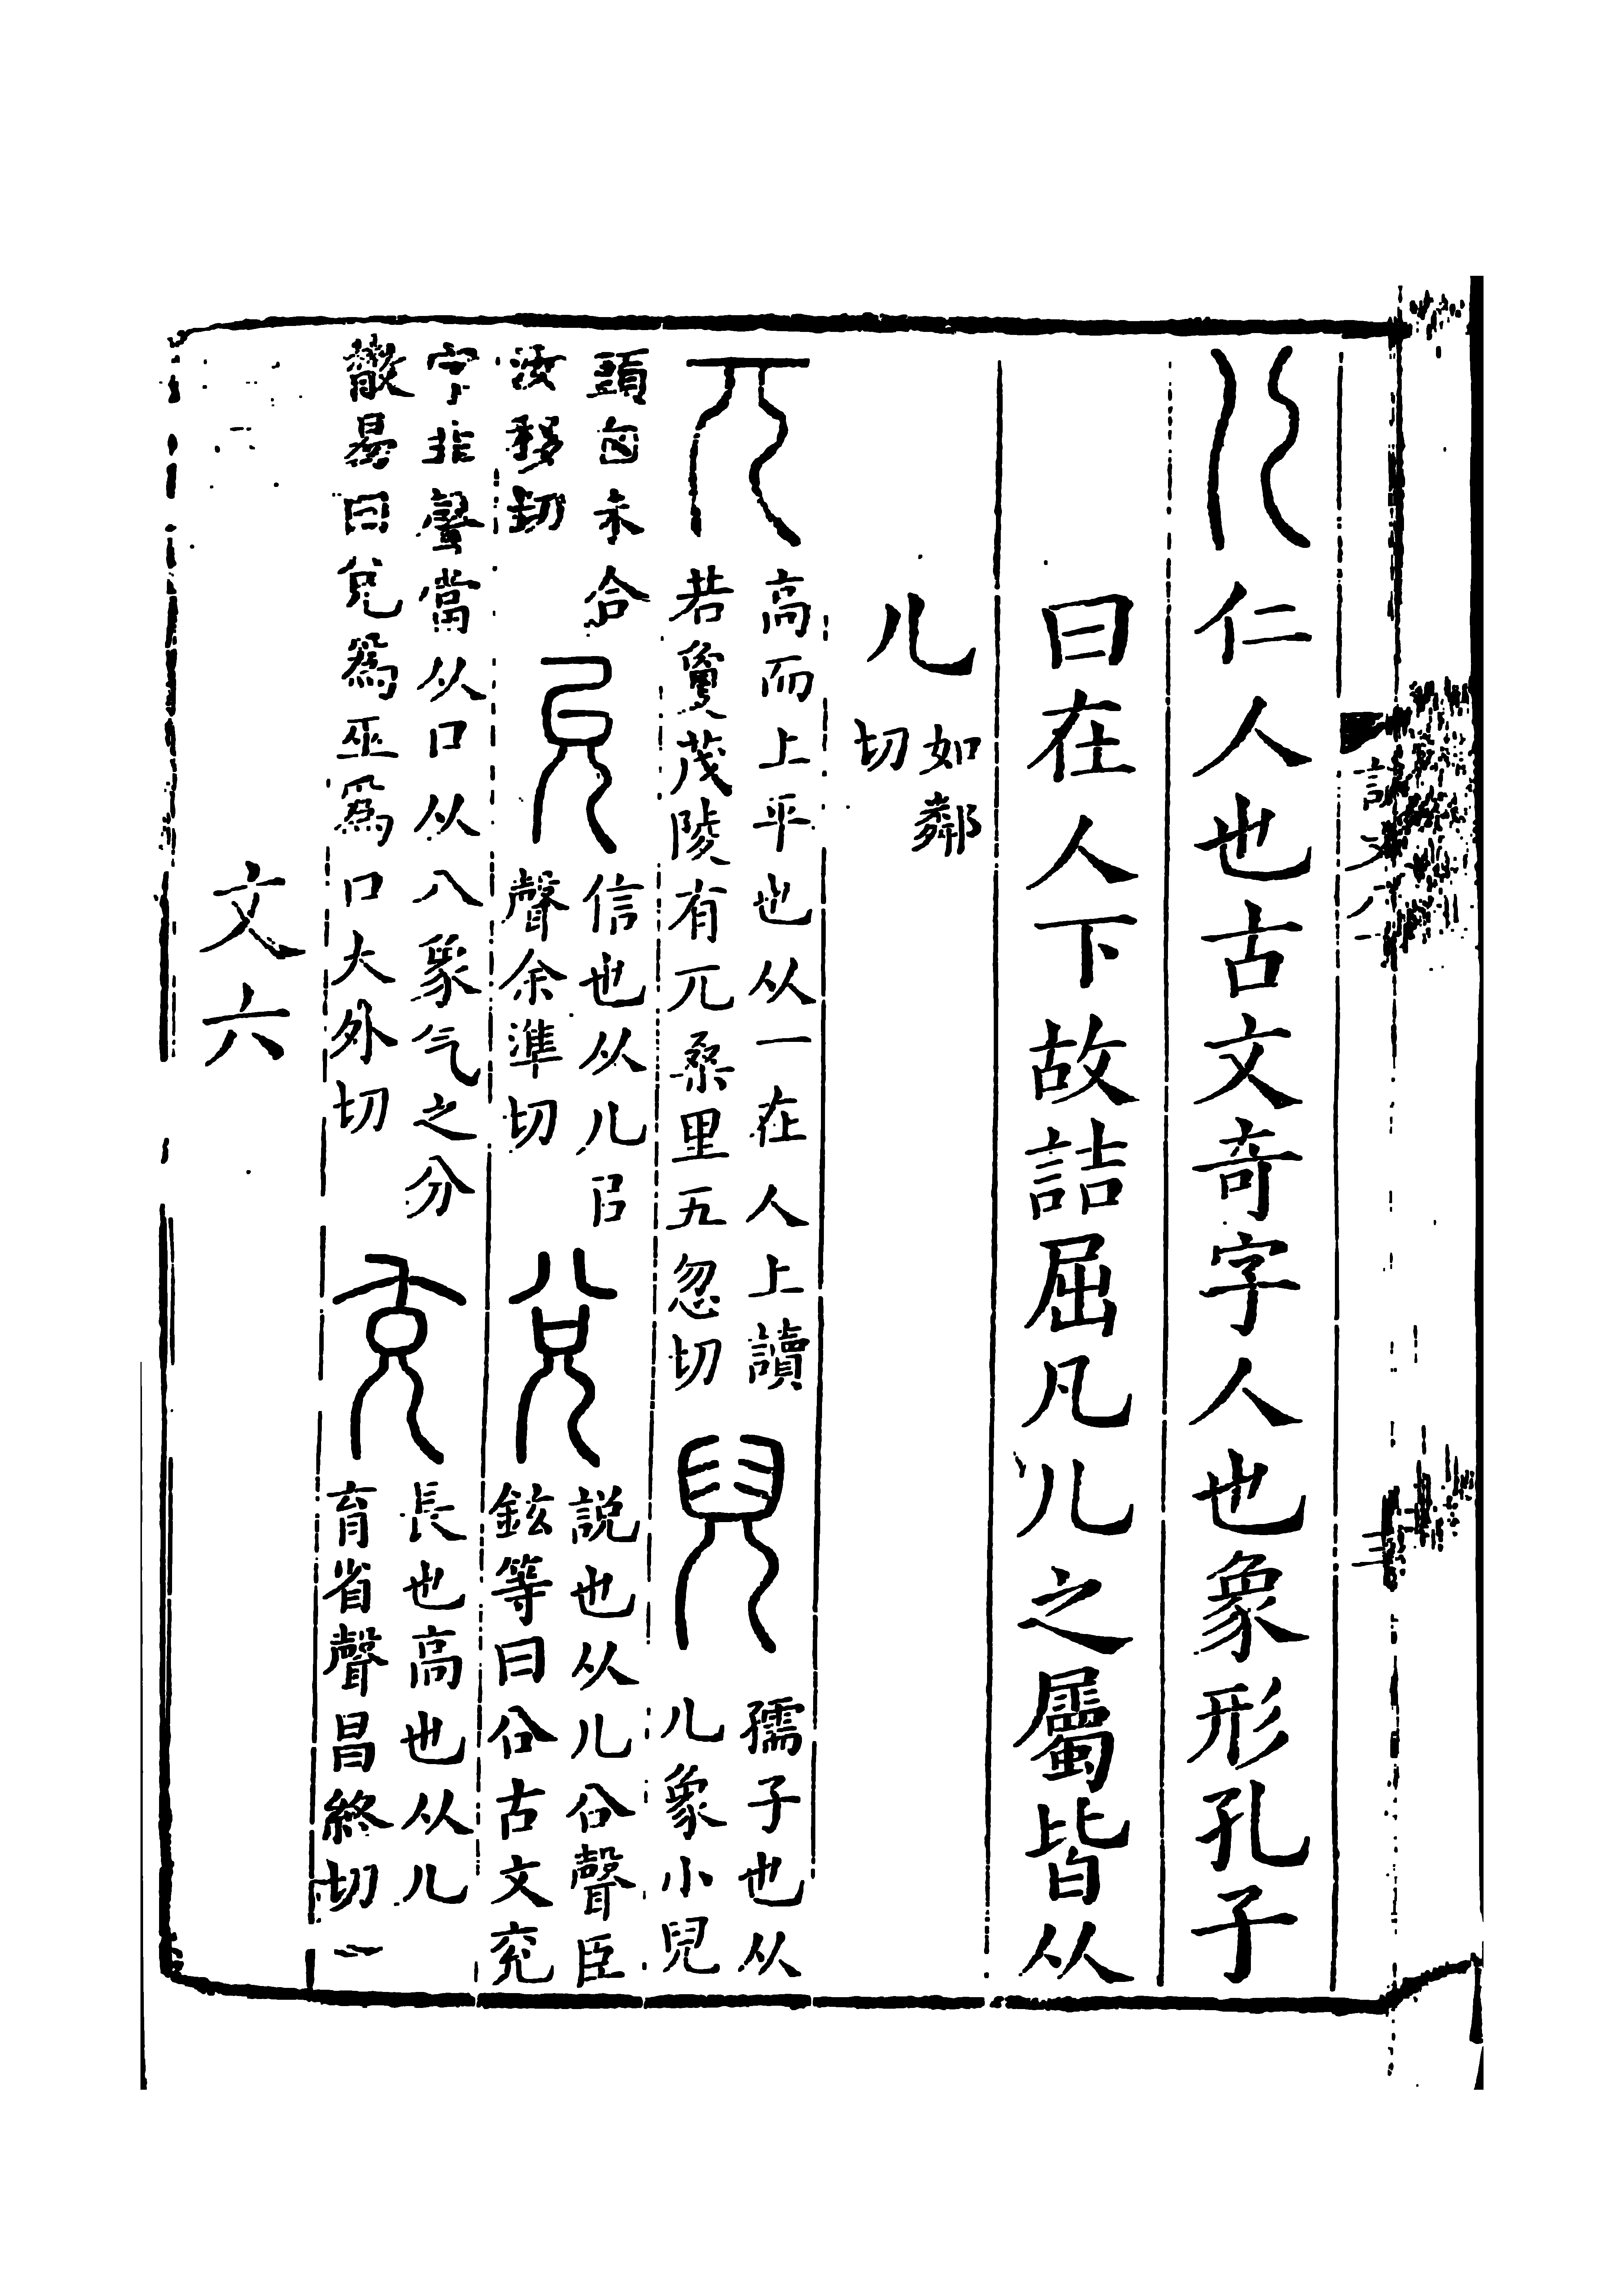 說文八
三
儿仁人也古文奇字人也象形孔子
曰在人下故詰屈凡儿之屬皆从
儿如鄰切
兀高而上平也从一在人上讀若敻茂陵有兀桑里五忽切兒孺子也从儿象小兒
頭囟未合汝移切允信也从儿㠯聲余準切兌說也从儿㕣聲臣鉉等曰㕣古文兖
字非聲當从口从八象气之分㪚易曰兌爲巫爲口大外切充長也高也从儿育省聲昌終切
文六